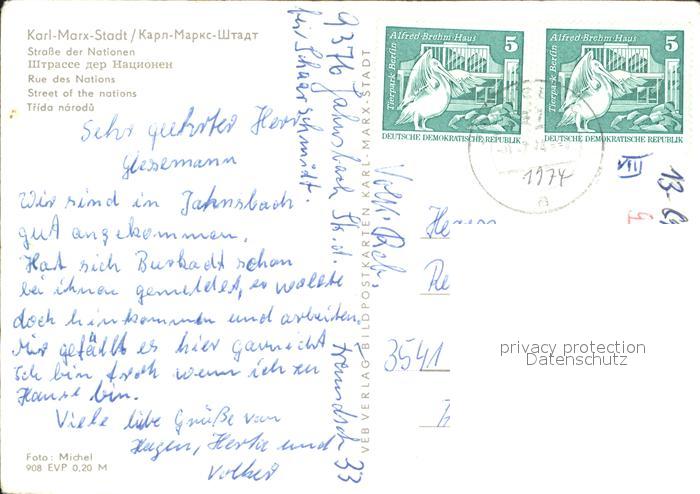 Karl-Marx-Stadt / Карл-Маркс-Штадт
Straße der Nationen
Штрассе дер Национен
Rue des Nations
Street of the nations
Třída národů
Sehr geehrter Herr
Giesemann
Wir sind in Jahnsbach
gut angekommen.
Hat sich Burkadt schon
bei ihnen gemeldet, er wollte
doch hinkommen und arbeiten.
Mir gefällt es hier garnicht
Ich bin froh wenn ich zu
Hause bin.
Viele liebe Grüße von
Hagen, Herta und
Volker
Foto: Michel
908 EVP 0,20 M
9376 Jahnsbach Str. d.
bei Schaarschmidt.
33
VEB VERLAG BILDPOSTKARTEN KARL-MARX-STADT
Alfred-Brehm-Haus
5
Tierpark Berlin
DEUTSCHE DEMOKRATISCHE REPUBLIK
Alfred-Brehm-Haus
5
Tierpark Berlin
DEUTSCHE DEMOKRATISCHE REPUBLIK
1974
a
VIII
3541
privacy protection
Datenschutz